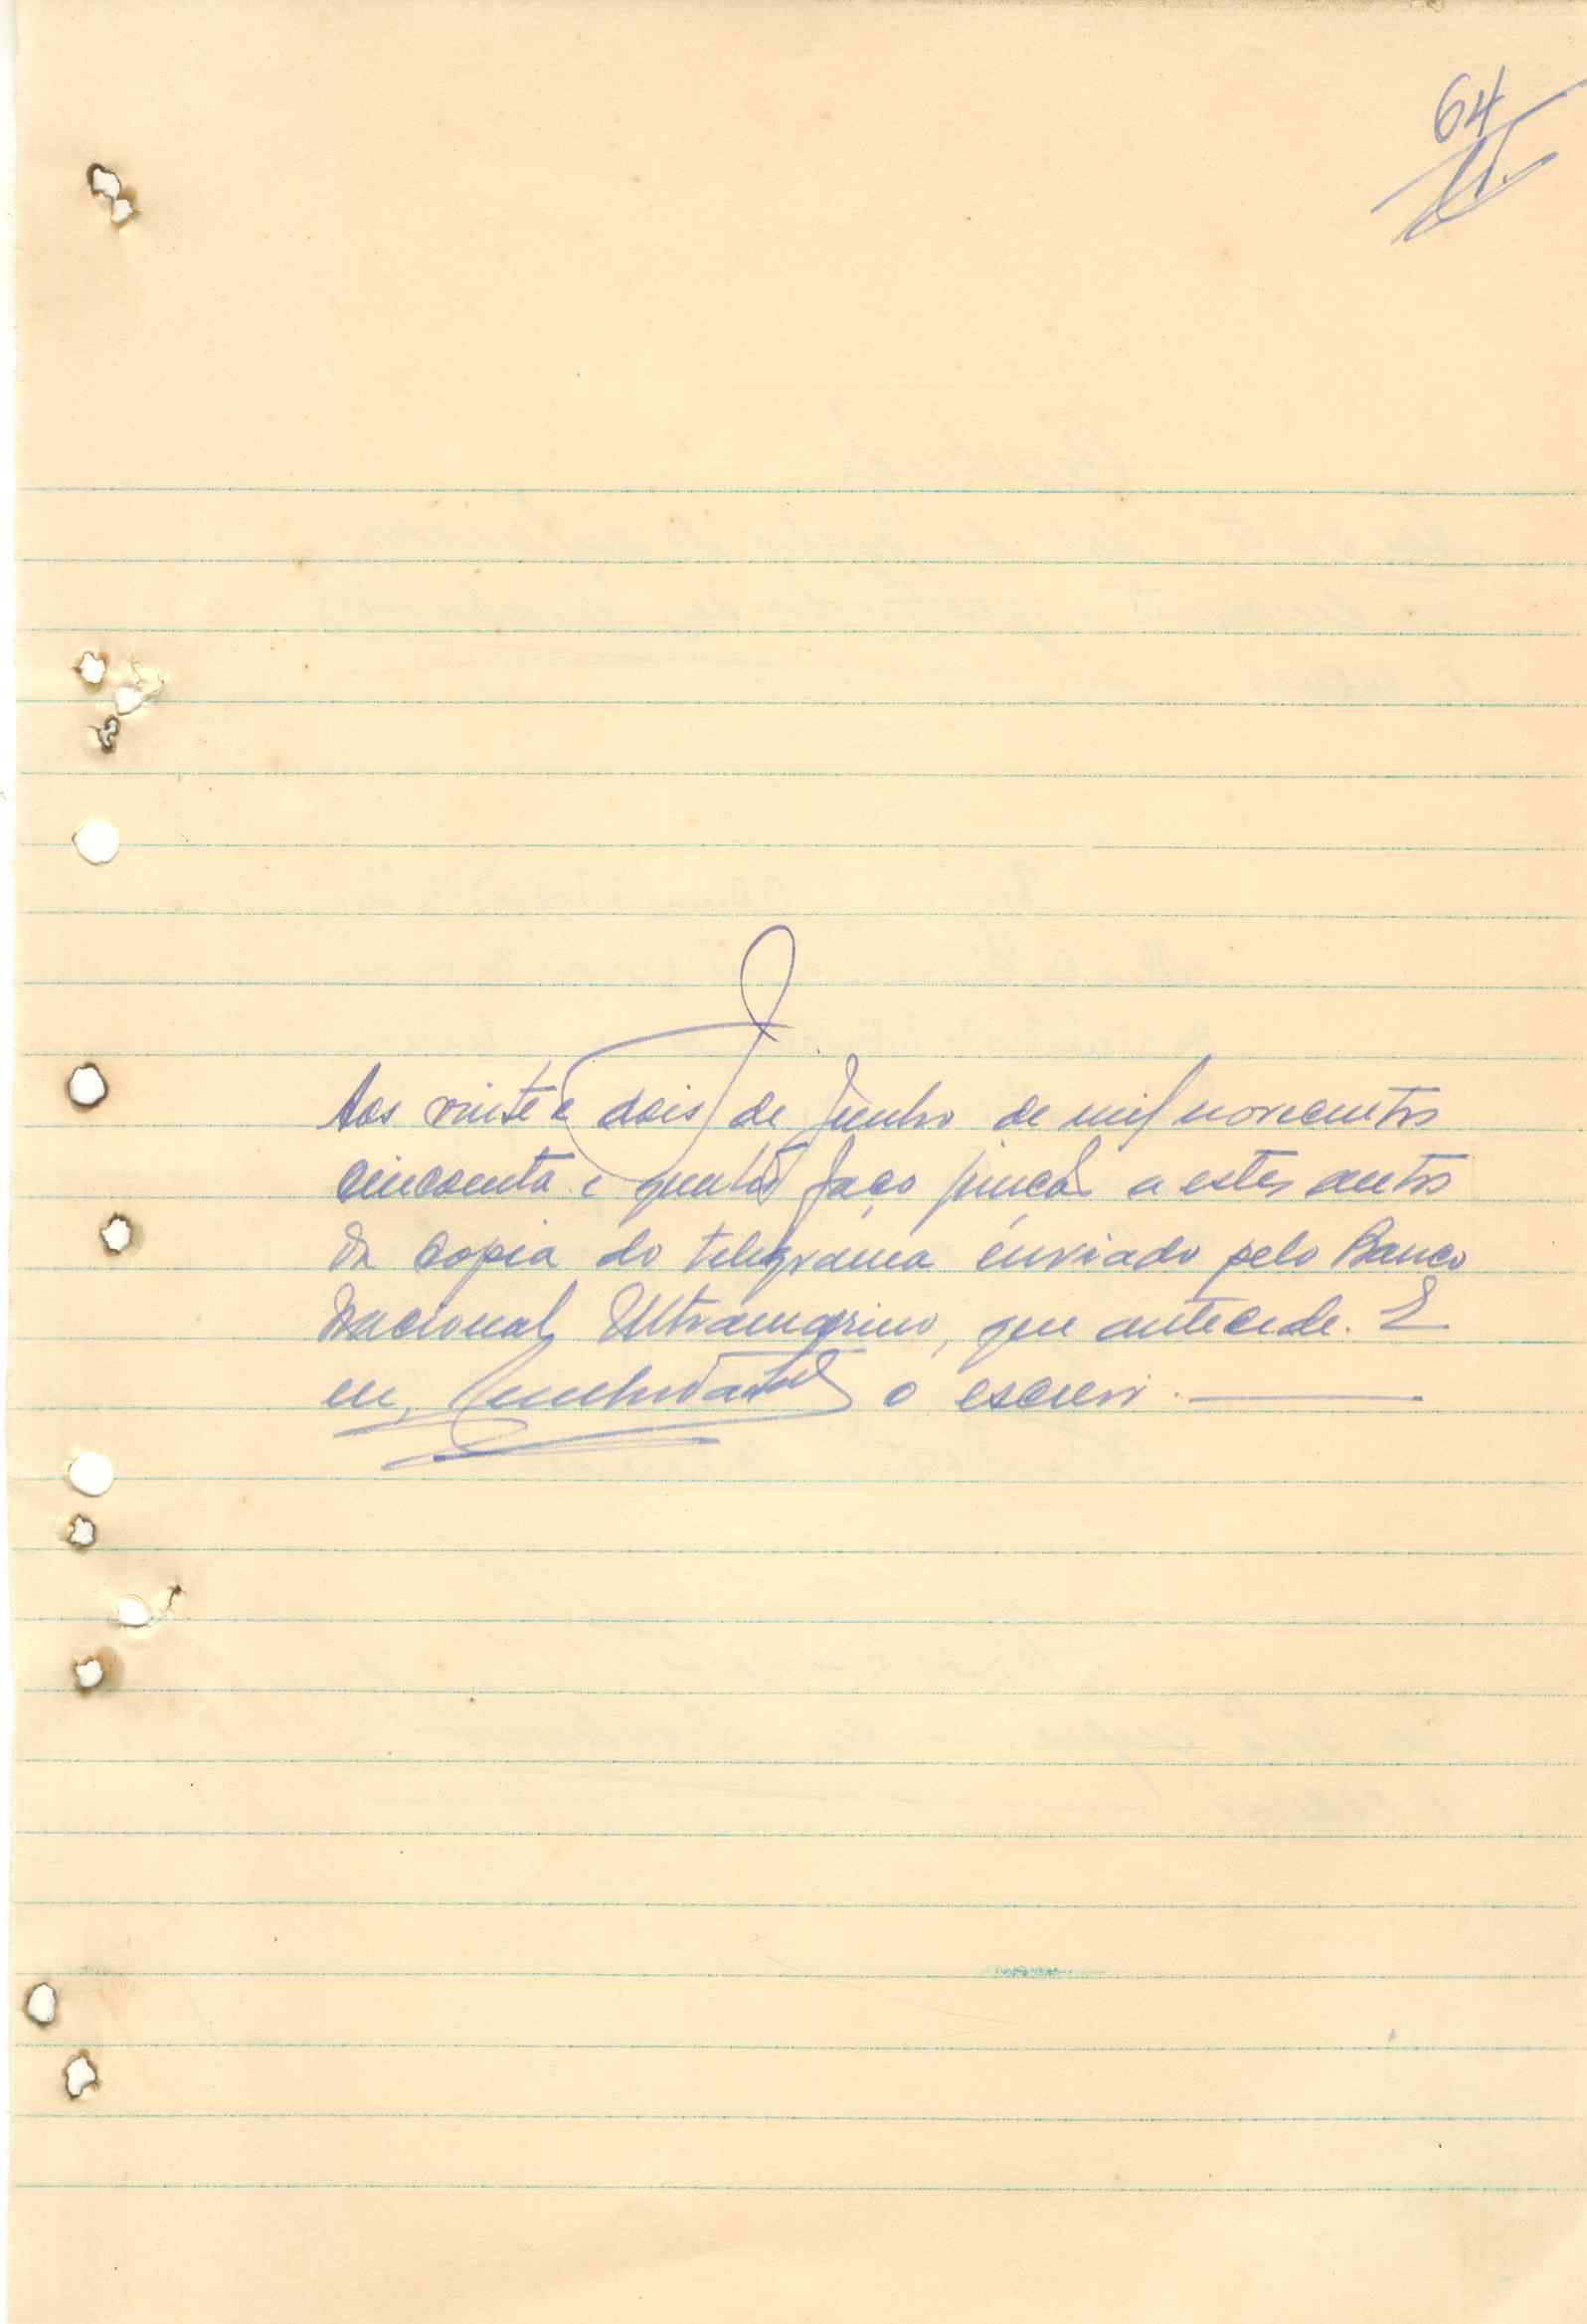 64
J
Aos vinte e dois de Junho de mil novecentos
cincoenta e quatro faço junção a estes autos
da copia do telegrama enviado pelo Banco
Nacional Ultramarino, que antecede. E
eu, o escrevi.